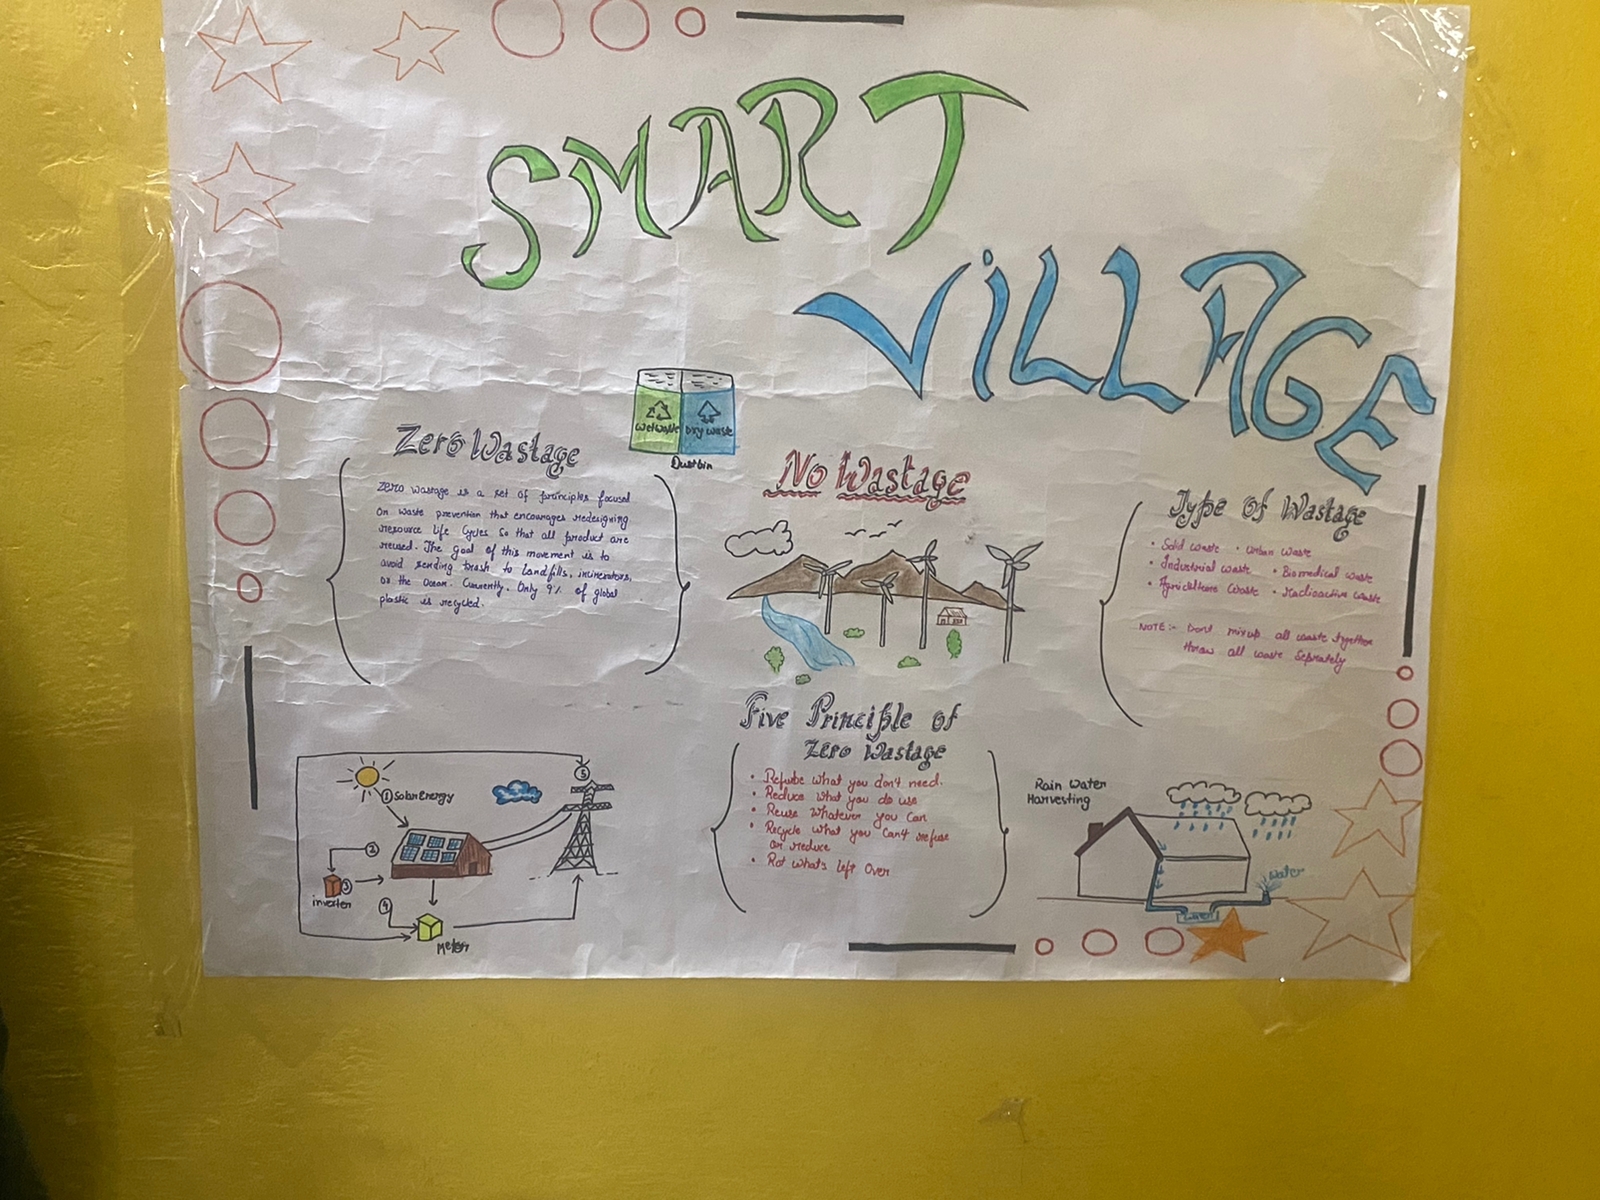 SMART
ViLLAGE
wet waste
Dry waste
Dustbin
Zero Wastage
Zero wastage is a set of principles focused
on waste prevention that encourages redesigning
resource life Cycles So that all product are
reused. The goal of this movement is to
avoid sending trash to landfills, incinerators,
or the Ocean. Currently, Only 9% of global
plastic is recycled.
No Wastage
Type of Wastage
• Solid waste • urban waste
• Industrial waste • Biomedical waste
• waste • Radioactive waste
NOTE :- Don't mixup all waste together
throw all waste Seprately
Five Principle of
Zero Wastage
• Refuse what you don't need.
• Reduce what you do use
• Reuse whatever you can
• Recycle what you can't refuse
or reduce
• Rot what's left Over
① Solar Energy
②
③
inverter
④
Meter
⑤
Rain Water
Harvesting
Water